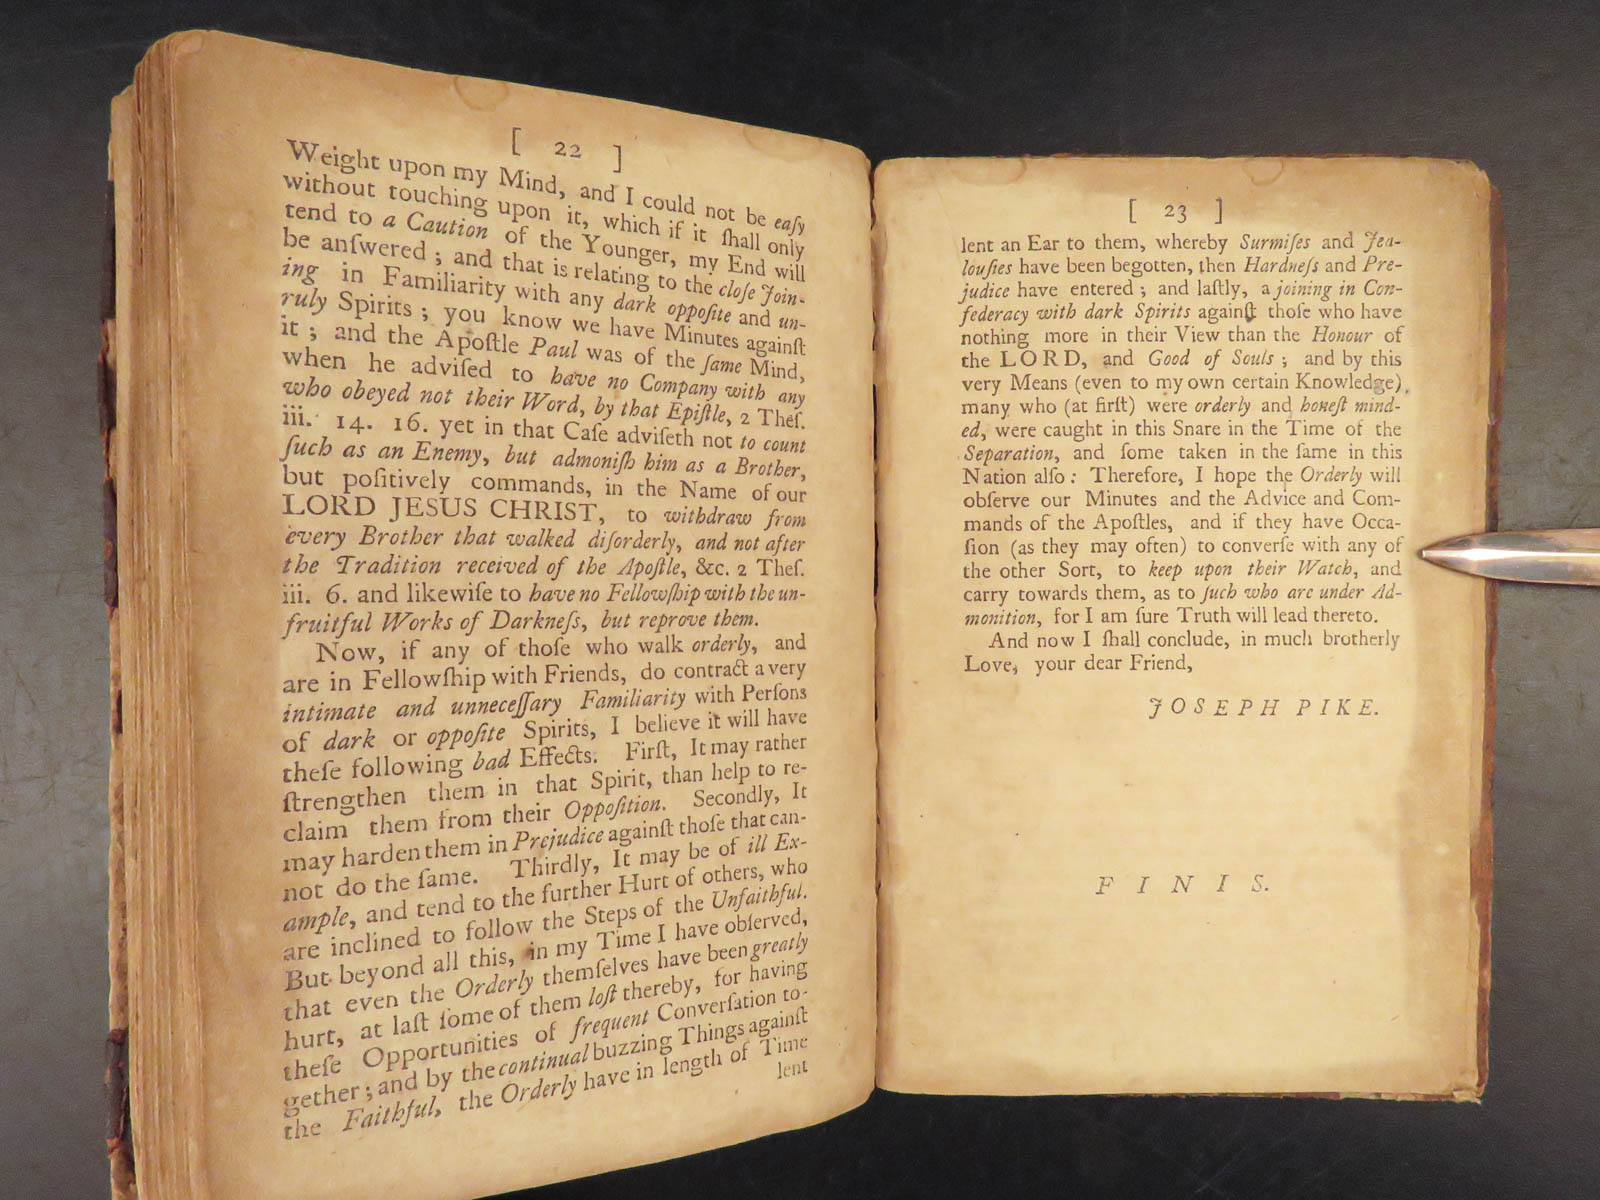 [ 22 ]
Weight upon my Mind, and I could not be eaſy
without touching upon it, which if it ſhall only
tend to a Caution of the Younger, my End will
be anſwered ; and that is relating to the cloſe Join-
ing in Familiarity with any dark oppoſite and un-
ruly Spirits ; you know we have Minutes againſt
it ; and the Apoſtle Paul was of the ſame Mind,
when he adviſed to have no Company with any
who obeyed not their Word, by that Epiſtle, 2 Theſ.
iii. 14. 16. yet in that Caſe adviſeth not to count
ſuch as an Enemy, but admoniſh him as a Brother,
but poſitively commands, in the Name of our
LORD JESUS CHRIST, to withdraw from
every Brother that walked diſorderly, and not after
the Tradition received of the Apoſtle, &c. 2 Theſ.
iii. 6. and likewiſe to have no Fellowſhip with the un-
fruitful Works of Darkneſs, but reprove them.
Now, if any of thoſe who walk orderly, and
are in Fellowſhip with Friends, do contract a very
intimate and unneceſſary Familiarity with Perſons
of dark or oppoſite Spirits, I believe it will have
theſe following bad Effects. Firſt, It may rather
ſtrengthen them in that Spirit, than help to re-
claim them from their Oppoſition. Secondly, It
may harden them in Prejudice againſt thoſe that can-
not do the ſame. Thirdly, It may be of ill Ex-
ample, and tend to the further Hurt of others, who
are inclined to follow the Steps of the Unfaithful.
But beyond all this, in my Time I have obſerved,
that even the Orderly themſelves have been greatly
hurt, at laſt ſome of them loſt thereby, for having
theſe Opportunities of frequent Converſation to-
gether ; and by the continual buzzing Things againſt
the Faithful, the Orderly have in length of Time
lent
[ 23 ]
lent an Ear to them, whereby Surmiſes and Jea-
louſies have been begotten, then Hardneſs and Pre-
judice have entered ; and laſtly, a joining in Con-
federacy with dark Spirits againſt thoſe who have
nothing more in their View than the Honour of
the LORD, and Good of Souls ; and by this
very Means (even to my own certain Knowledge)
many who (at firſt) were orderly and honeſt mind-
ed, were caught in this Snare in the Time of the
Separation, and ſome taken in the ſame in this
Nation alſo : Therefore, I hope the Orderly will
obſerve our Minutes and the Advice and Com-
mands of the Apoſtles, and if they have Occa-
ſion (as they may often) to converſe with any of
the other Sort, to keep upon their Watch, and
carry towards them, as to ſuch who are under Ad-
monition, for I am ſure Truth will lead thereto.
And now I ſhall conclude, in much brotherly
Love, your dear Friend,
JOSEPH PIKE.
FINIS.